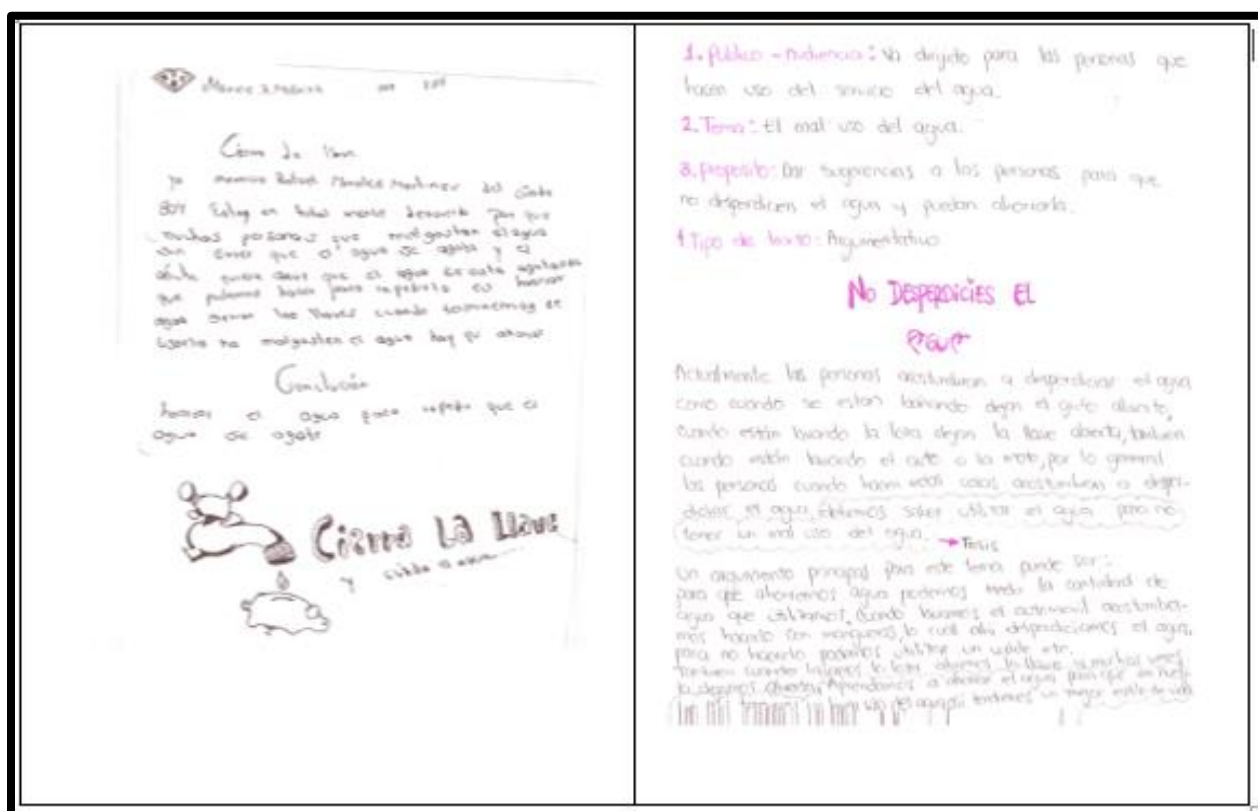 Cierra la llave
yo Rafael Morales Martinez del Grado
807 Estoy en total mente desacuerdo por que
muchas personas que malgastan el agua
sin creer que el agua se agota y el
quiere decir que el agua se esta agotando
que podemos hacer para
agua cerrar las llaves cuando terminemos de
no malgasten el agua hay
Conclusión
el agua para que el
agua se agote
Cierra La Llave
y cuida el agua
1. Público - Audiencia: Va dirigido para las personas que
hacen uso del servicio del agua.
2. Tema: El mal uso del agua.
3. Proposito: Dar sugerencias a las personas para que
no desperdicien el agua y puedan ahorrarla.
Tipo de texto: Argumentativo
No DESPERDICIES EL
AGUA
Actualmente las personas acostumbran a desperdiciar el agua
como cuando se estan bañando dejan el grifo abierto,
cuando están lavando la loza dejan la llave abierta, tambien
cuando están lavando el auto o la moto, por lo general
las personas cuando hacen estas cosas acostumbran a desper-
diciar el agua, debemos saber utilizar el agua para no
tener un mal uso del agua. → Tesis
Un argumento principal para este tema puede ser:
para que ahorremos agua podemos medir la cantidad de
agua que utilizamos, cuando lavamos el automovil acostumbra-
mos hacerlo con mangueras, lo cual ahi desperdiciamos el agua,
para no hacerlo podemos utilizar un valde etc.
Tambien cuando lavamos la loza abrimos la llave y muchas veces
la dejamos abierta, Aprendamos a ahorrar el agua para que
buen uso del agua tendremos un mejor estilo de vida